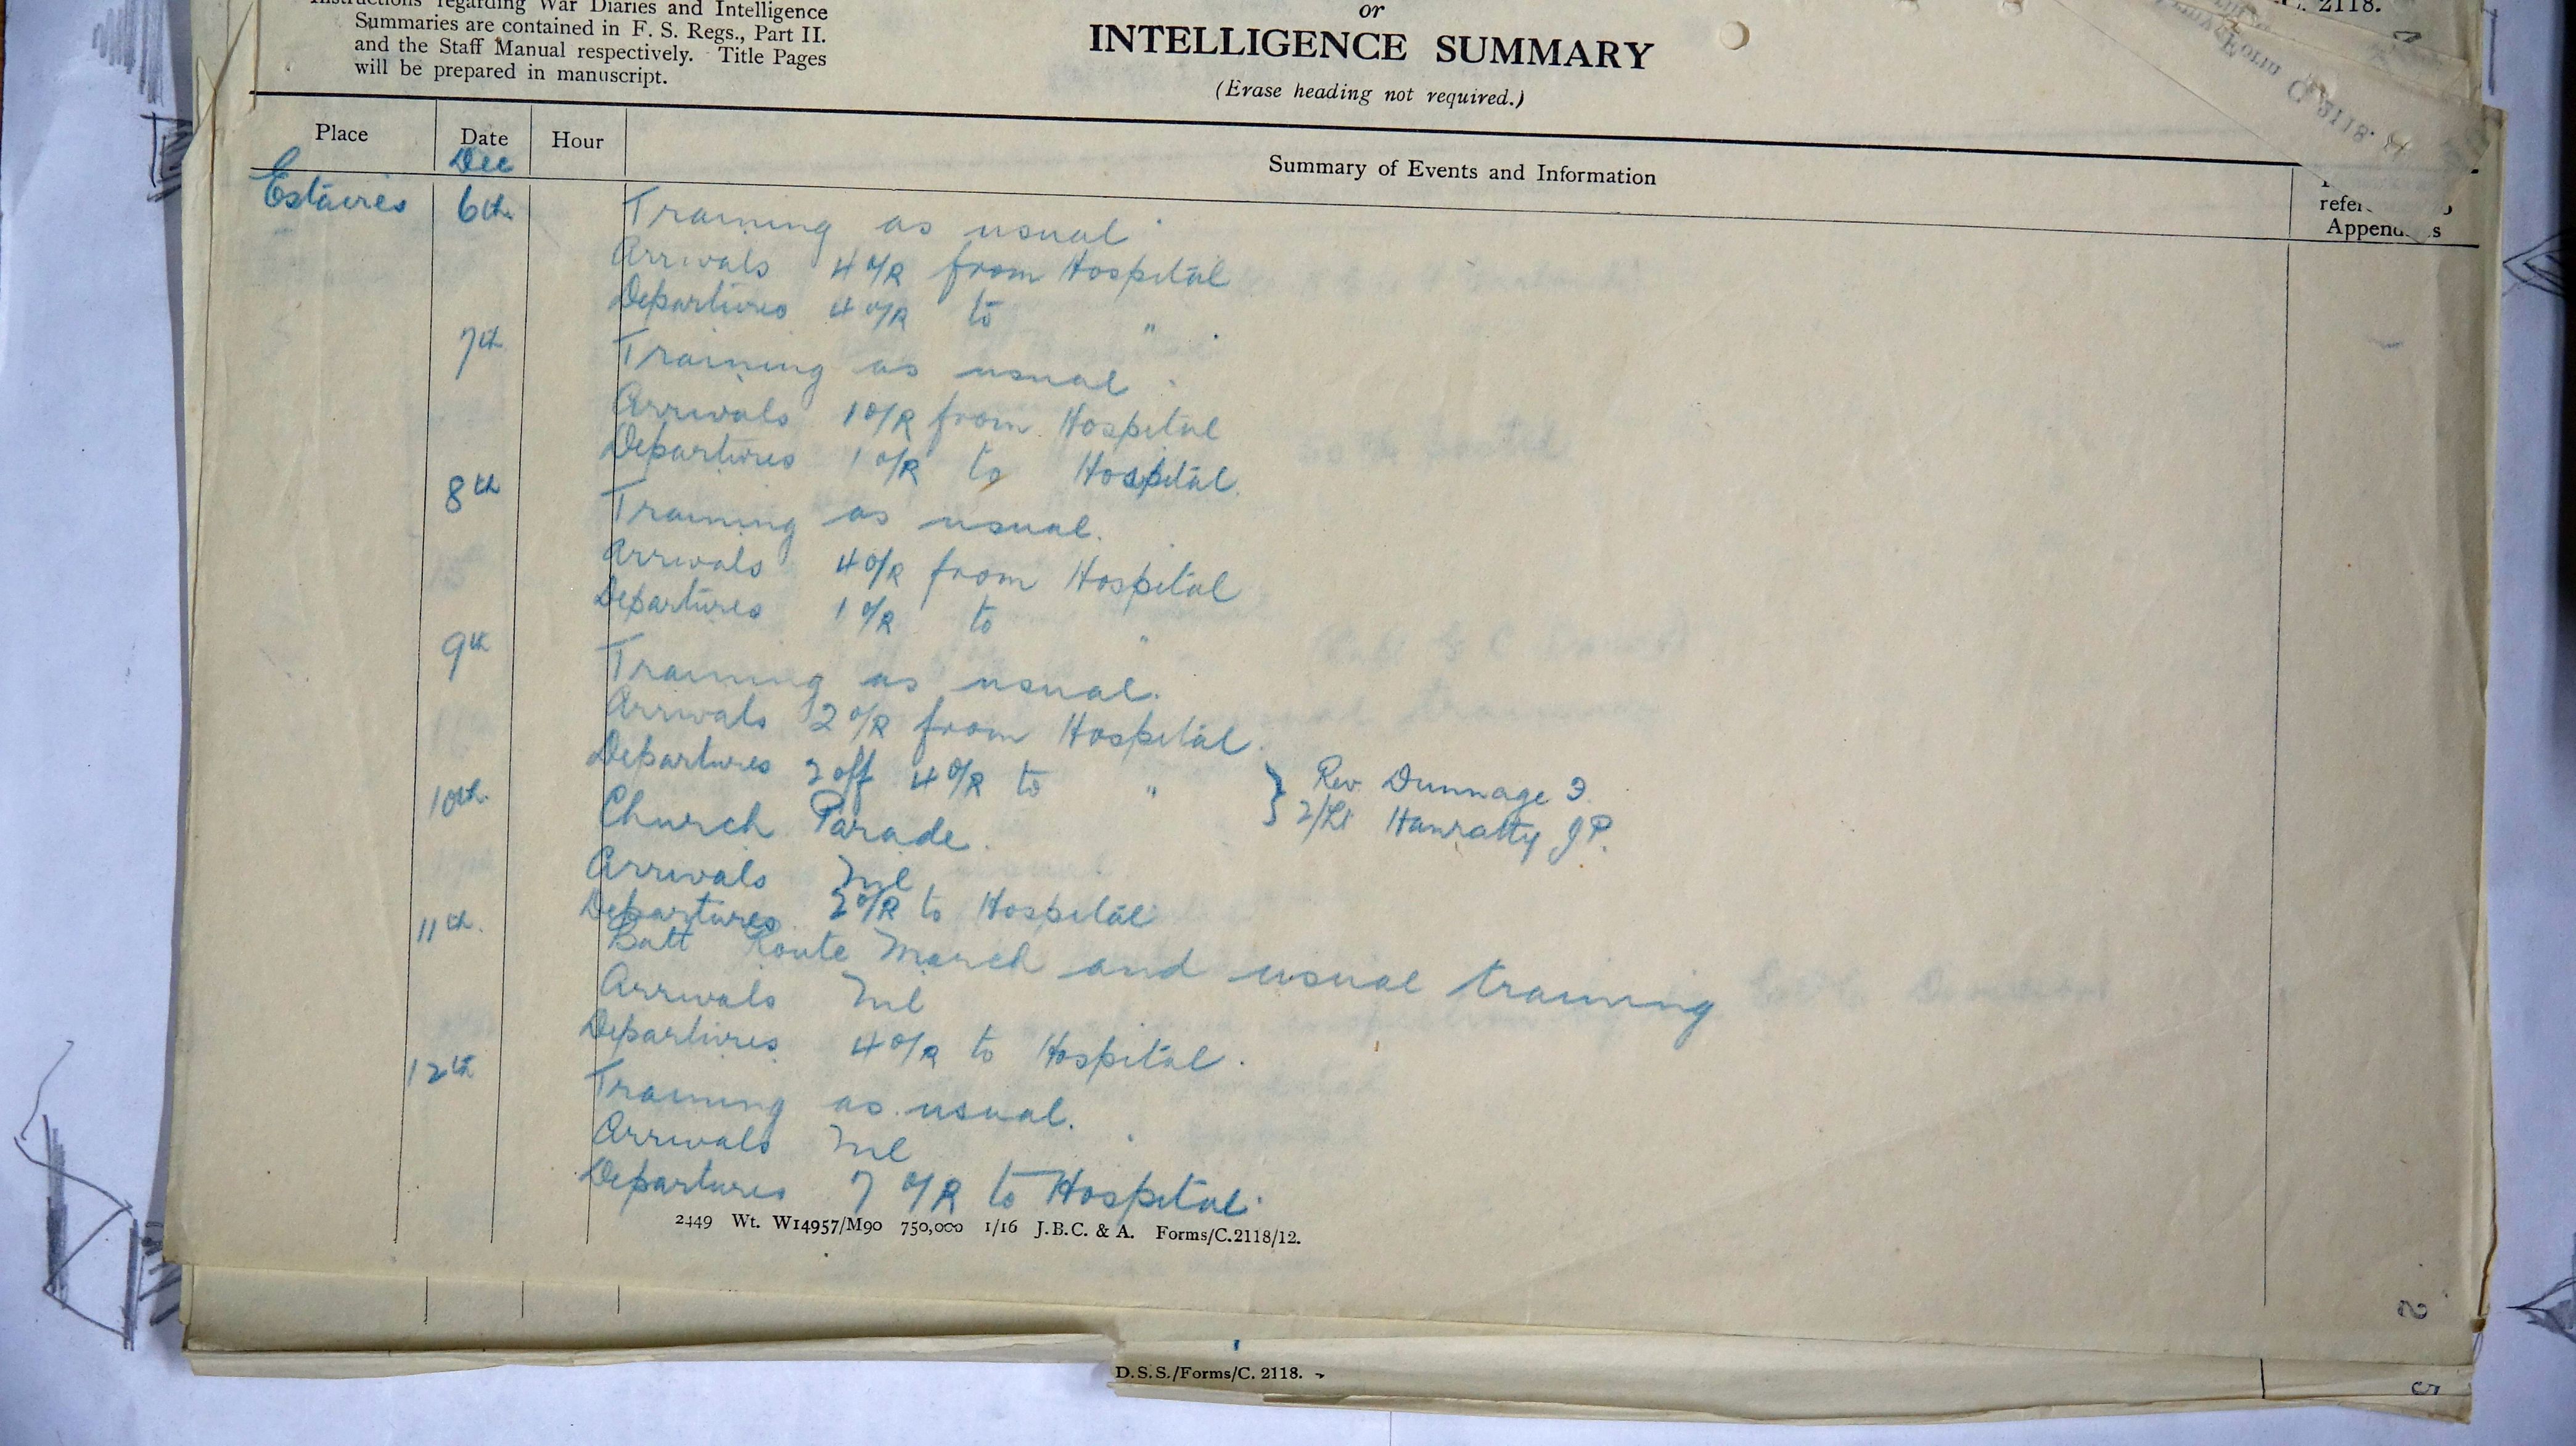 Instructions regarding War Diaries and Intelligence
Summaries are contained in F. S. Regs., Part II.
and the Staff Manual respectively. Title Pages
will be prepared in manuscript.
or
INTELLIGENCE SUMMARY
(Erase heading not required.)
C. 2118.
Form C. 2118.
Place Date Hour Summary of Events and Information
Dec
Estaires 6th Training as usual
Arrivals 4 O/R from Hospital
Departures 4 O/R to " .
7th Training as usual .
Arrivals 1 O/R from Hospital
Departures 1 O/R to Hospital.
8th Training as usual.
Arrivals 4 O/R from Hospital
Departures 1 O/R to "
9th Training as usual.
Arrivals 2 O/R from Hospital.
Departures 2 off 4 O/R to " } Rev Dunnage
2/Lt Hanratty J P.
10th Church Parade.
Arrivals Nil
Departures 2 O/R to Hospital
11th. Batt Route March and usual training
Arrivals Nil
Departures 4 O/R to Hospital.
12th Training as usual.
Arrivals Nil
Departures 7 O/R to Hospital.
2449 Wt. W14957/M90 750,000 1/16 J.B.C. & A. Forms/C.2118/12.
2
D.S.S./Forms/C. 2118.
5